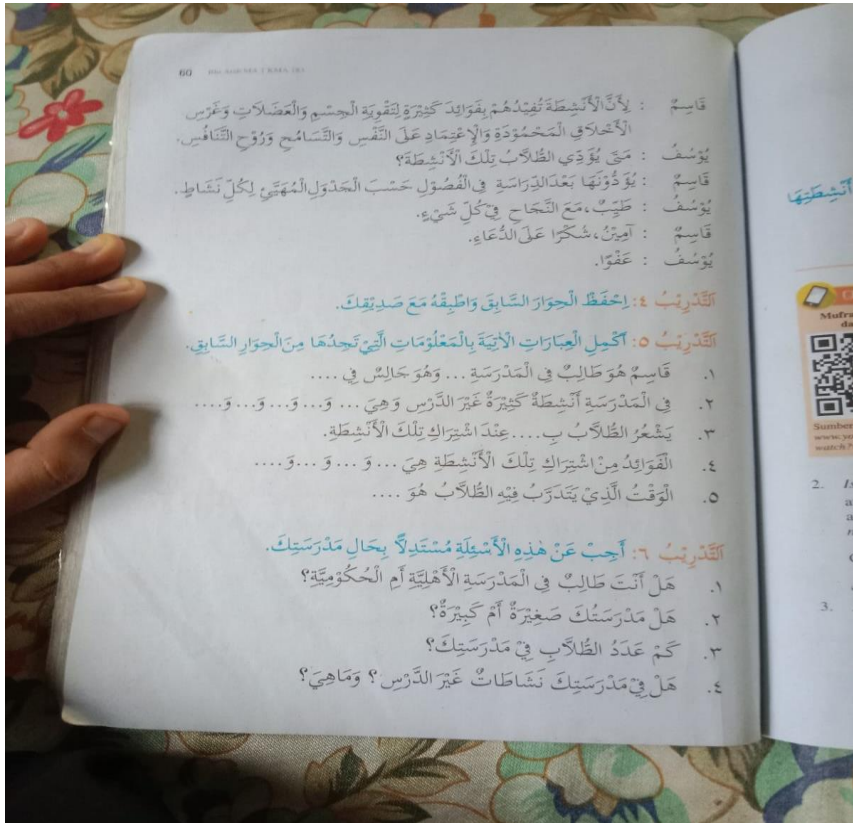 60
قَاسِمٌ : لِأَنَّ الْأَنْشِطَةَ تُفِيْدُهُمْ بِفَوَائِدَ كَثِيْرَةٍ لِتَقْوِيَةِ الْجِسْمِ وَالْعَضَلَاتِ وَغَرْسِ
الْأَخْلَاقِ الْمَحْمُوْدَةِ وَالْاِعْتِمَادِ عَلَى النَّفْسِ وَالتَّسَامُحِ وَرُوْحِ التَّنَافُسِ.
يُوْسُفُ : مَتَى يُؤَدِّي الطُّلَّابُ تِلْكَ الْأَنْشِطَةَ؟
قَاسِمٌ : يُؤَدُّوْنَهَا بَعْدَ الدِّرَاسَةِ فِي الْفُصُوْلِ حَسْبَ الْجَدْوَلِ الْمُهَيَّئِ لِكُلِّ نَشَاطٍ.
يُوْسُفُ : طَيِّبٌ، مَعَ النَّجَاحِ فِيْ كُلِّ شَيْءٍ.
قَاسِمٌ : آمِيْنُ، شُكْرًا عَلَى الدُّعَاءِ.
يُوْسُفُ : عَفْوًا.
اَلتَّدْرِيْبُ ٤: اِحْفَظْ الْحِوَارَ السَّابِقَ وَاطْبِقْهُ مَعَ صَدِيْقِكَ.
اَلتَّدْرِيْبُ ٥: أَكْمِلِ الْعِبَارَاتِ الْآتِيَةَ بِالْمَعْلُوْمَاتِ الَّتِيْ تَجِدُهَا مِنَ الْحِوَارِ السَّابِقِ.
١. قَاسِمٌ هُوَ طَالِبٌ فِي الْمَدْرَسَةِ ... وَهُوَ جَالِسٌ فِي ....
٢. فِي الْمَدْرَسَةِ أَنْشِطَةٌ كَثِيْرَةٌ غَيْرَ الدَّرْسِ وَهِيَ ... وَ... وَ... وَ... وَ....
٣. يَشْعُرُ الطُّلَّابُ بِ.... عِنْدَ اشْتِرَاكِ تِلْكَ الْأَنْشِطَةِ.
٤. الْفَوَائِدُ مِنْ اشْتِرَاكِ تِلْكَ الْأَنْشِطَةِ هِيَ ... وَ ... وَ ... وَ....
٥. الْوَقْتُ الَّذِيْ يَتَدَرَّبُ فِيْهِ الطُّلَّابُ هُوَ ....
اَلتَّدْرِيْبُ ٦: أَجِبْ عَنْ هٰذِهِ الْأَسْئِلَةِ مُسْتَدِلًّا بِحَالِ مَدْرَسَتِكَ.
١. هَلْ أَنْتَ طَالِبٌ فِي الْمَدْرَسَةِ الْأَهْلِيَّةِ أَمِ الْحُكُوْمِيَّةِ؟
٢. هَلْ مَدْرَسَتُكَ صَغِيْرَةٌ أَمْ كَبِيْرَةٌ؟
٣. كَمْ عَدَدُ الطُّلَّابِ فِيْ مَدْرَسَتِكَ؟
٤. هَلْ فِيْ مَدْرَسَتِكَ نَشَاطَاتٌ غَيْرَ الدَّرْسِ؟ وَمَاهِيَ؟
أَنْشِطَتِهَا
Mufra
da
Sumber
watch?
2.
3.